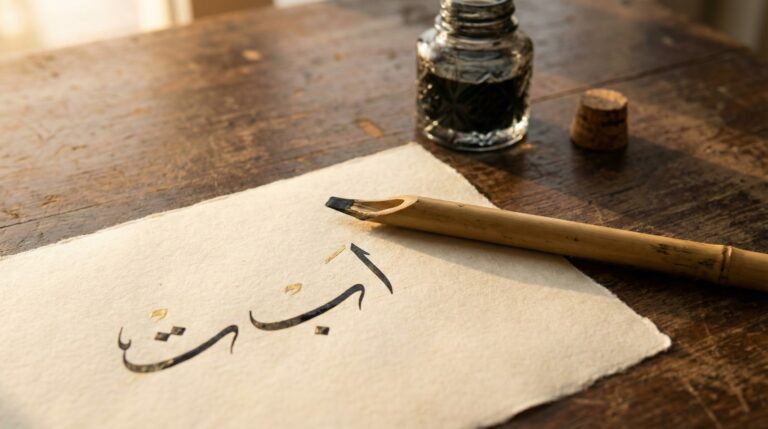 ا ب ت